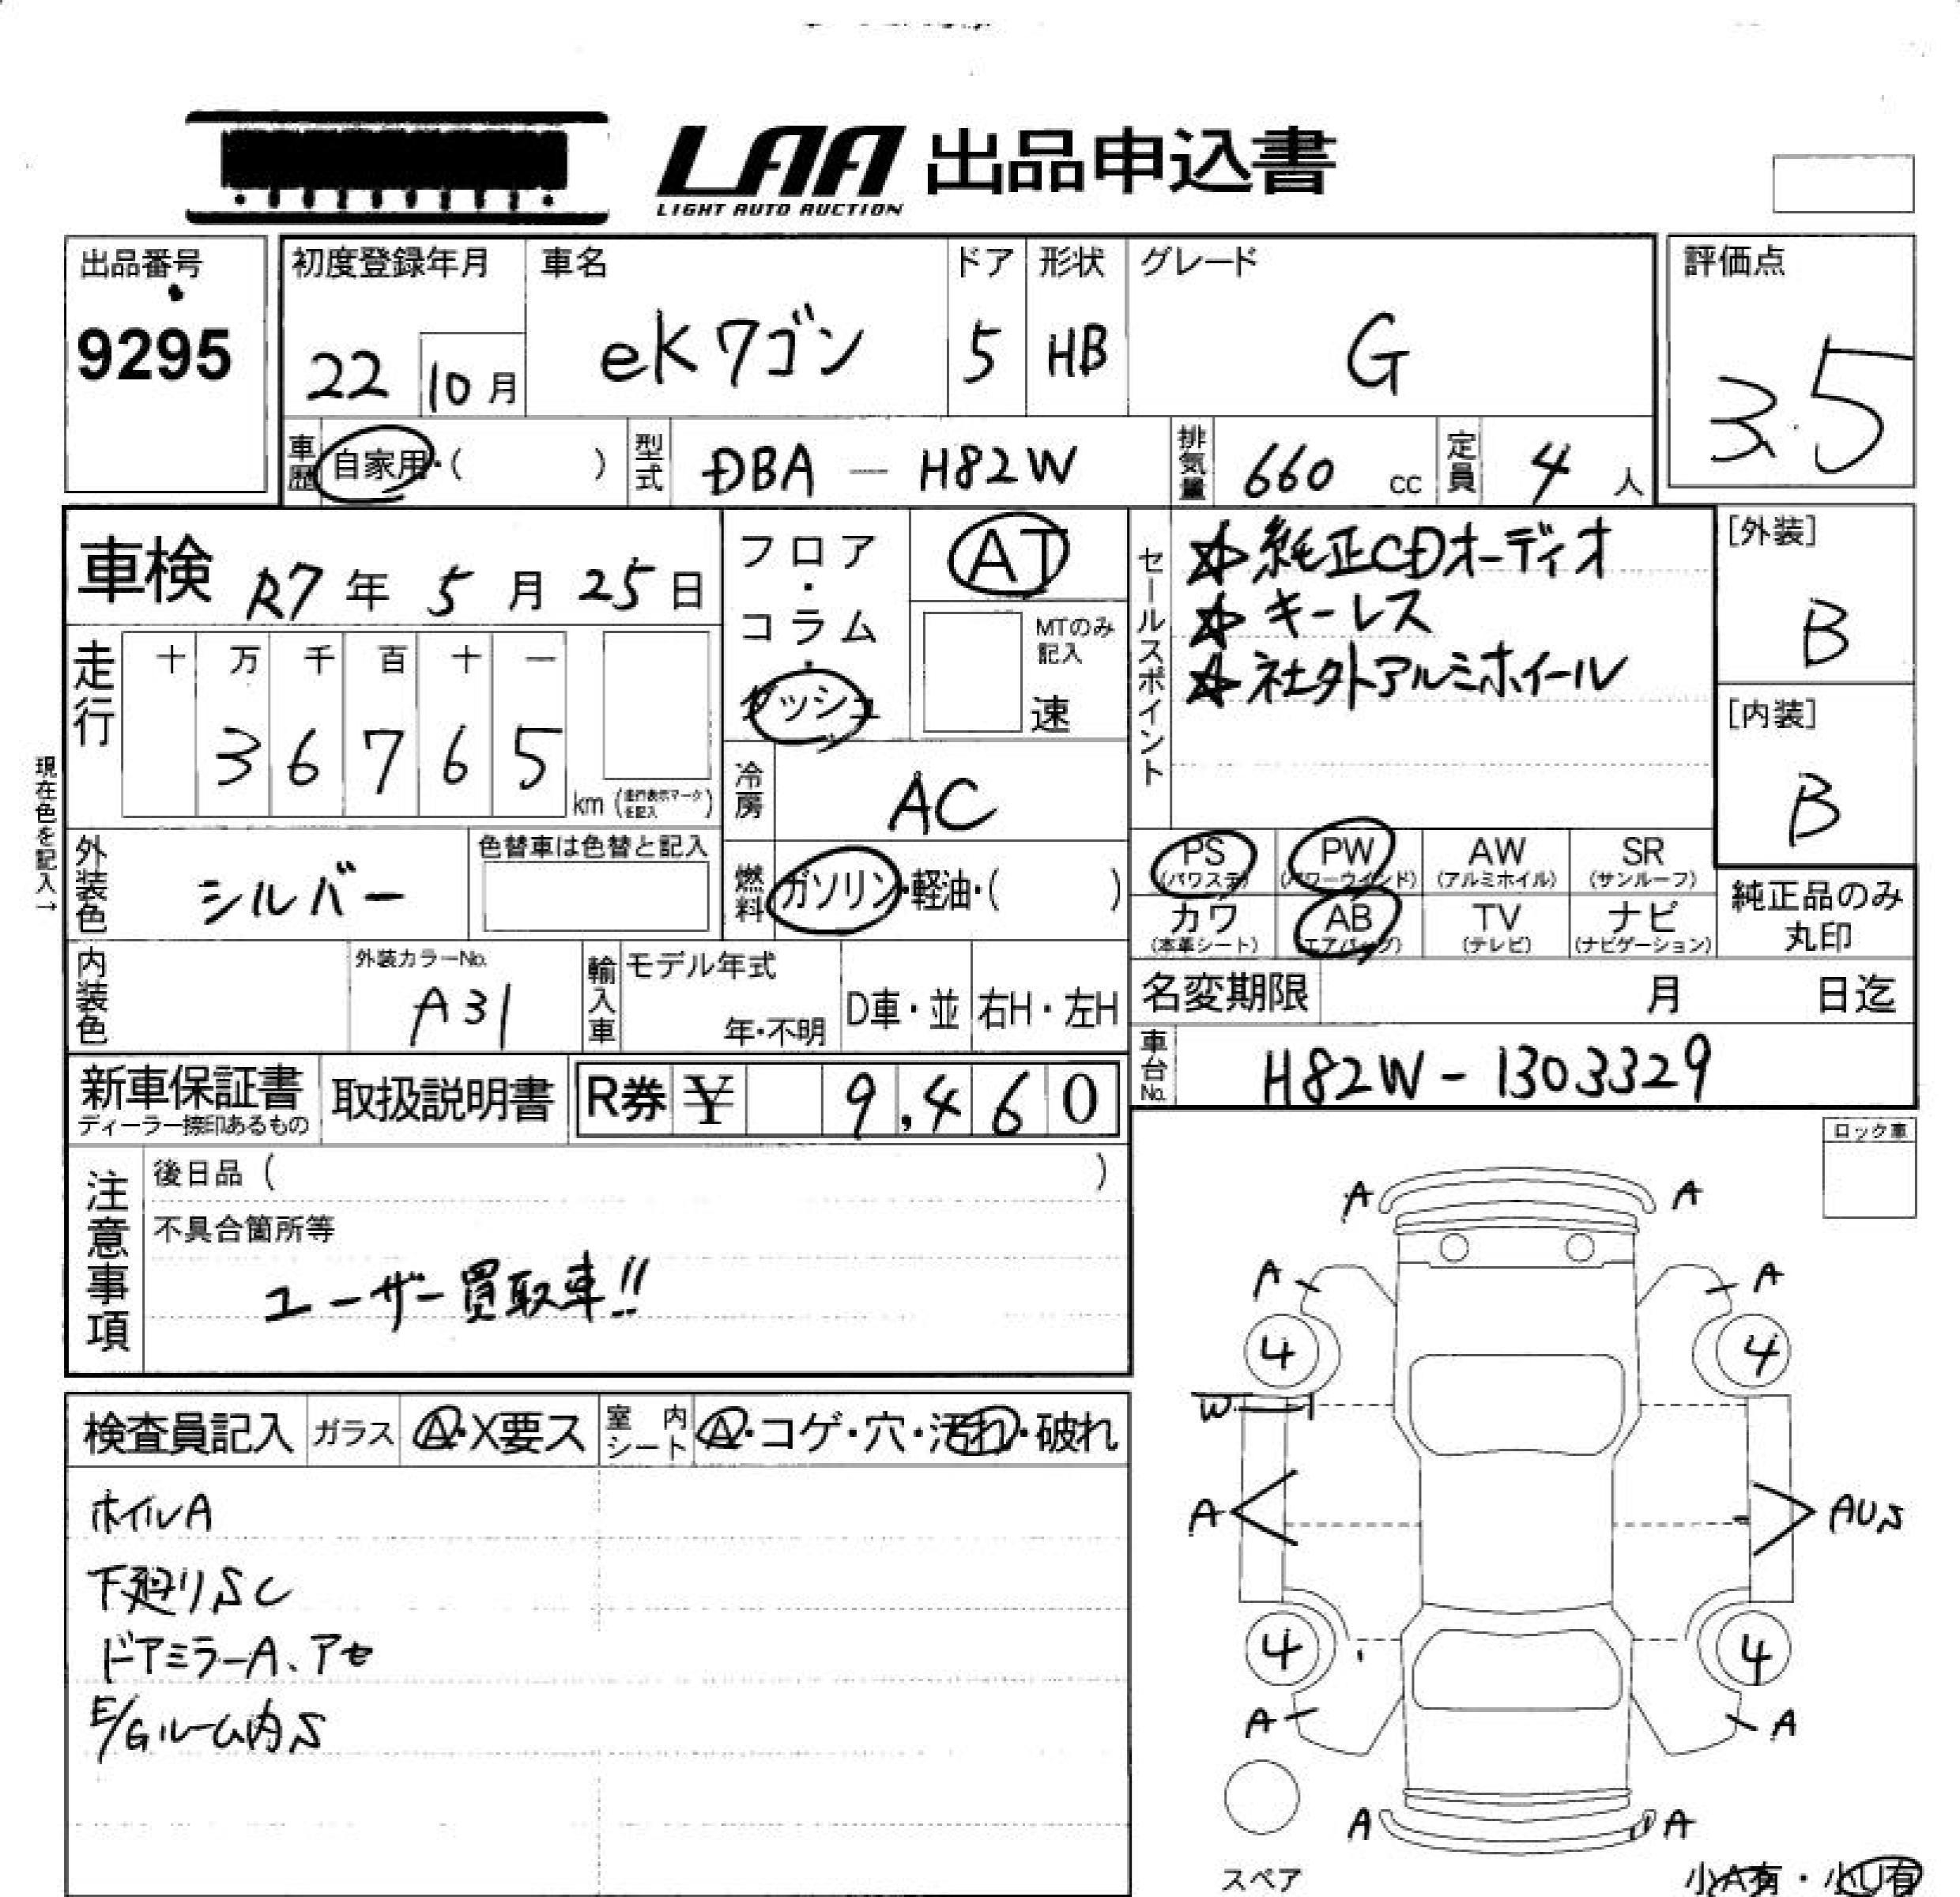 LAA 出品申込書
LIGHT AUTO AUCTION
出品番号
9295
初度登録年月
22
10 月
車名
eKワゴン
ドア
5
形状
HB
グレード
G
評価点
3.5
車歴
自家用・( )
型式
DBA - H82W
排気量
660 cc
定員
4 人
車検 R7 年 5 月 25 日
フロア・コラム・ダッシュ
AT
MTのみ記入
速
セールスポイント
☆純正CDオーディオ
☆キーレス
☆社外アルミホイール
[外装]
B
[内装]
B
走行
十 万 千 百 十 一
3 6 7 6 5
km (走行表示マークを記入)
現在色を記入→
冷房
AC
外装色
シルバー
色替車は色替と記入
燃料
ガソリン・軽油・( )
PS (パワステ)
PW (パワーウインド)
AW (アルミホイル)
SR (サンルーフ)
カワ (本革シート)
AB (エアバッグ)
TV (テレビ)
ナビ (ナビゲーション)
純正品のみ
丸印
内装色
外装カラーNo.
A31
輸入車
モデル年式
年・不明
D車・並
右H・左H
名変期限 月 日迄
車台No.
H82W-1303329
新車保証書
ディーラー捺印あるもの
取扱説明書
R券 ¥ 9,460
注意事項
後日品 ( )
不具合箇所等
ユーザー買取車!!
ロック車
検査員記入
ガラス
A・X要ス
室内シート
A・コゲ・穴・汚れ・破れ
ホイルA
下廻りSC
ドアミラーA、アセ
E/Gルーム内S
A A
A A
4 4
W
A AUS
4 4
A A
A A
スペア
小A有・小U有